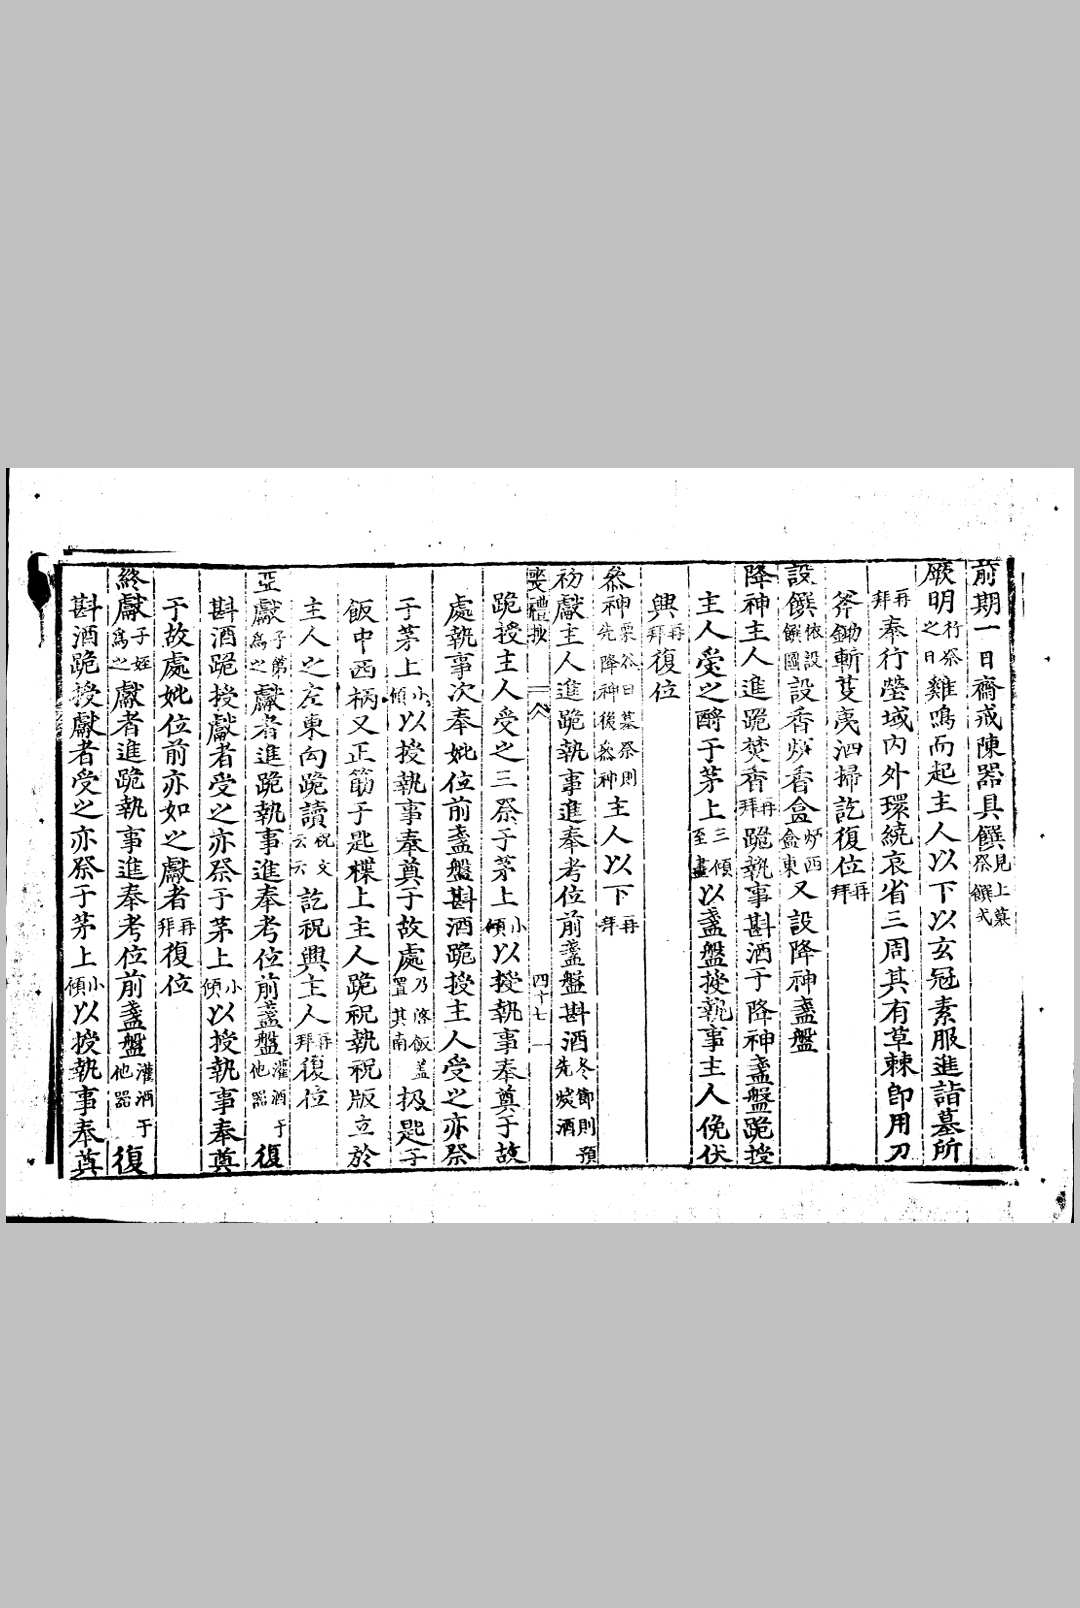 前期一日齋戒陳器具饌見上墓祭饌式
厥明行祭之日雞鳴而起主人以下以玄冠素服進詣墓所
再拜奉行塋域內外環繞哀省三周其有草棘即用刀
斧鋤斬芟夷洒掃訖復位再拜
設饌依設饌圖設香爐香盒炉西盒東又設降神盞盤
降神主人進跪焚香再拜跪執事斟酒于降神盞盤跪授
主人受之酹于茅上三傾至盡以盞盤授執事主人俛伏
興再拜復位
叅神栗谷曰墓祭則先降神後叅神主人以下再拜
初獻主人進跪執事進奉考位前盞盤斟酒冬節則預先煖酒
喪禮抄 二 八 四十七
跪授主人受之三祭于茅上小傾以授執事奉奠于故
處執事次奉妣位前盞盤斟酒跪授主人受之亦祭
于茅上小傾以授執事奉奠于故處乃啓飯盖置其南扱匙于
飯中西柄又正筯于匙楪上主人跪祝執祝版立於
主人之左東向跪讀祝文云云訖祝興主人再拜復位
亞獻子弟爲之獻者進跪執事進奉考位前盞盤灌酒于他器復
斟酒跪授獻者受之亦祭于茅上小傾以授執事奉奠
于故處妣位前亦如之獻者再拜復位
終獻子姪爲之獻者進跪執事進奉考位前盞盤灌酒于他器復
斟酒跪授獻者受之亦祭于茅上小傾以授執事奉奠